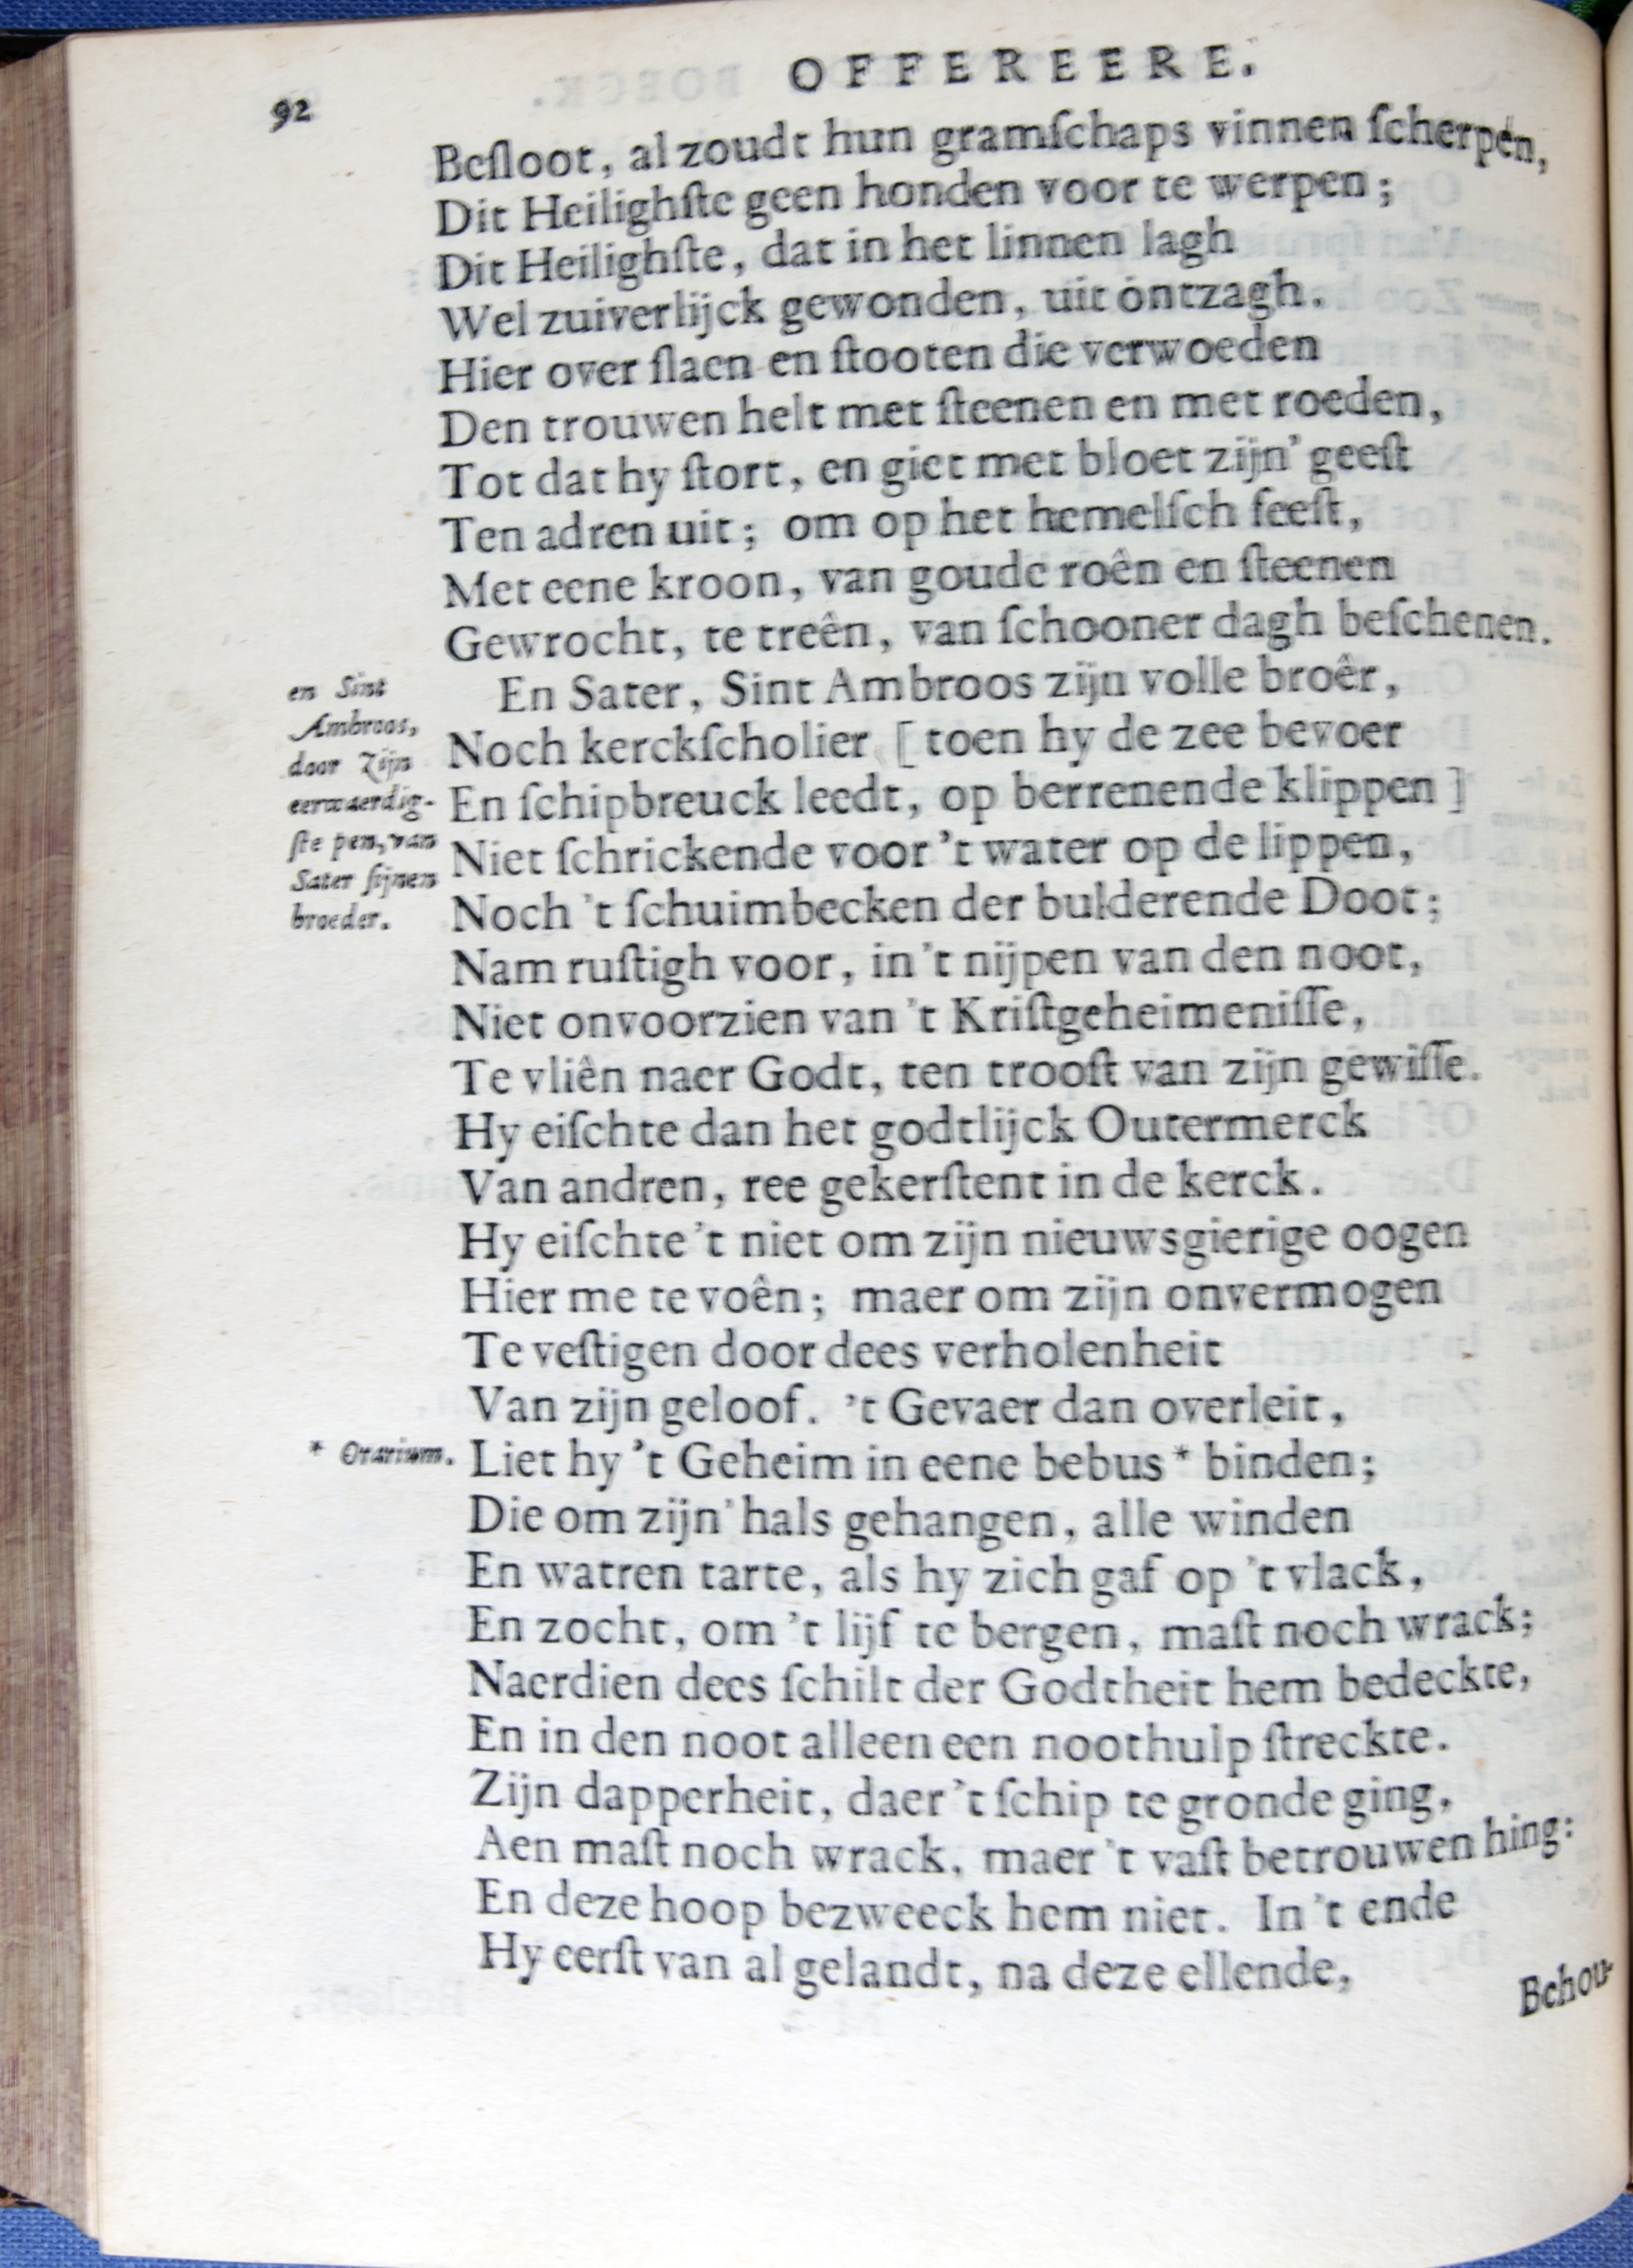 OFFEREERE.
92
Beſloot, al zoudt hun gramſchaps vinnen ſcherpen,
Dit Heilighſte geen honden voor te werpen;
Dit Heilighſte, dat in het linnen lagh
Wel zuiverlijck gewonden, uit ontzagh.
Hier over ſlaen en ſtooten die verwoeden
Den trouwen helt met ſteenen en met roeden,
Tot dat hy ſtort, en giet met bloet zijn' geeſt
Ten adren uit; om op het hemelſch feeſt,
Met eene kroon, van goude roên en ſteenen
Gewrocht, te treên, van ſchooner dagh beſchenen.
en Sint
Ambroos,
door zijn
eerwaerdig-
ſte pen, van
Sater ſijnen
broeder.
En Sater, Sint Ambroos zijn volle broêr,
Noch kerckſcholier [ toen hy de zee bevoer
En ſchipbreuck leedt, op berrenende klippen ]
Niet ſchrickende voor 't water op de lippen,
Noch 't ſchuimbecken der bulderende Doot;
Nam ruſtigh voor, in 't nijpen van den noot,
Niet onvoorzien van 't Kriſtgeheimeniſſe,
Te vliên naer Godt, ten trooſt van zijn gewiſſe.
Hy eiſchte dan het godtlijck Outermerck
Van andren, ree gekerſtent in de kerck.
Hy eiſchte 't niet om zijn nieuwsgierige oogen
Hier me te voên; maer om zijn onvermogen
Te veſtigen door dees verholenheit
Van zijn geloof. 't Gevaer dan overleit,
* Orarium.
Liet hy 't Geheim in eene bebus * binden;
Die om zijn' hals gehangen, alle winden
En watren tarte, als hy zich gaf op 't vlack,
En zocht, om 't lijf te bergen, maſt noch wrack;
Naerdien dees ſchilt der Godtheit hem bedeckte,
En in den noot alleen een noothulp ſtreckte.
Zijn dapperheit, daer 't ſchip te gronde ging,
Aen maſt noch wrack, maer 't vaſt betrouwen hing:
En deze hoop bezweeck hem niet. In 't ende
Hy eerſt van al gelandt, na deze ellende,
Behou-